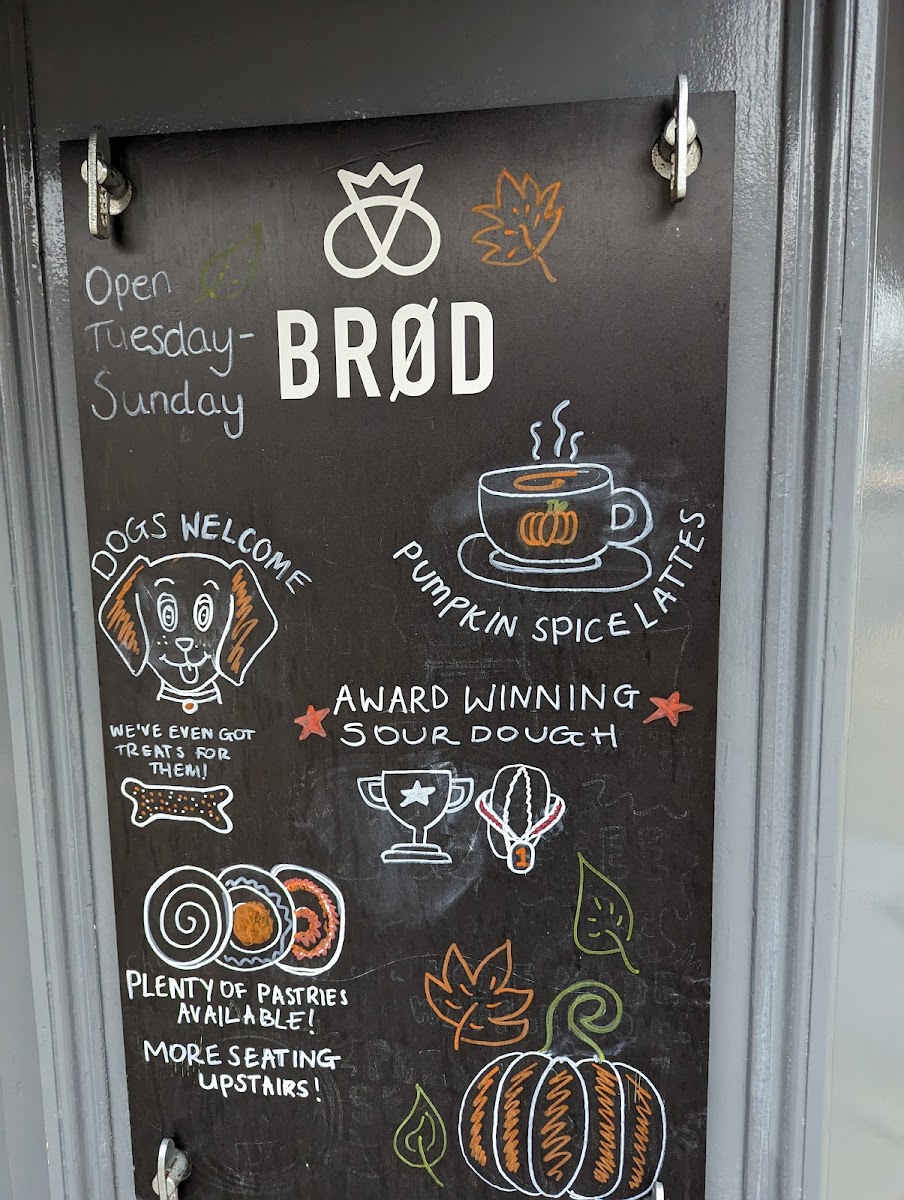 Open
Tuesday-
Sunday
BRØD
DOGS WELCOME
PUMPKIN SPICE LATTES
WE'VE EVEN GOT
TREATS FOR
THEM!
AWARD WINNING
SOUR DOUGH
1
PLENTY OF PASTRIES
AVAILABLE!
MORE SEATING
UPSTAIRS!